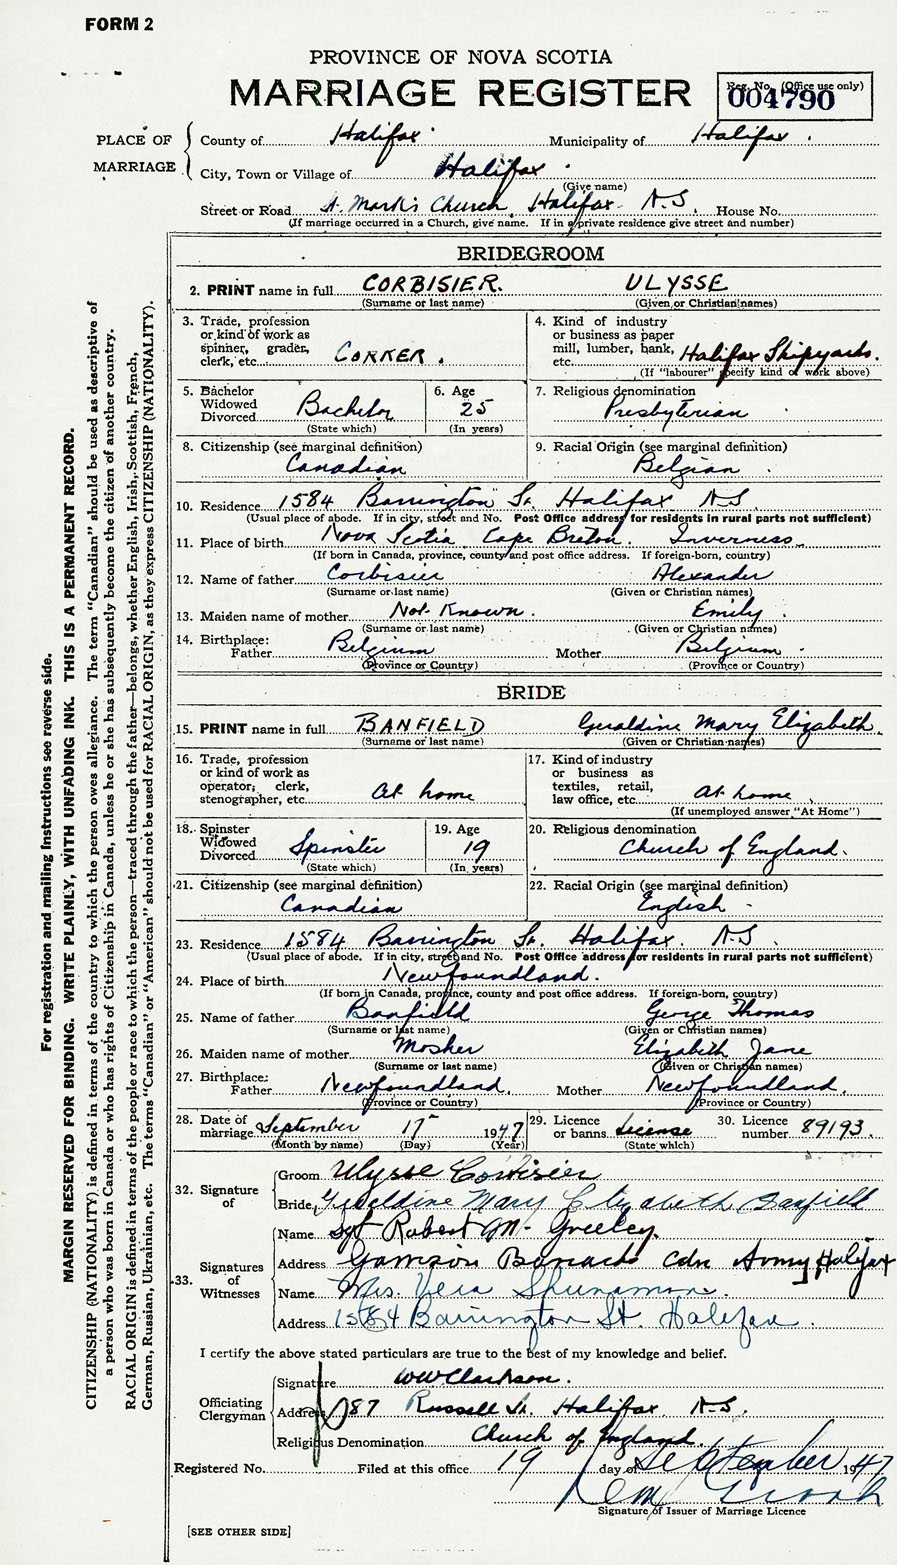 FORM 2
PROVINCE OF NOVA SCOTIA
MARRIAGE REGISTER
Reg. No. (Office use only)
004790
PLACE OF MARRIAGE
County of Halifax Municipality of Halifax
City, Town or Village of Halifax
(Give name)
Street or Road St. Mark's Church, Halifax N.S. House No.
(If marriage occurred in a Church, give name. If in a private residence give street and number)
BRIDEGROOM
2. PRINT name in full CORBISIER. ULYSSE
(Surname or last name) (Given or Christian names)
3. Trade, profession or kind of work as spinner, grader, clerk, etc. CORKER.
4. Kind of industry or business as paper mill, lumber, bank, etc. Halifax Shipyards.
(If "labourer" specify kind of work above)
5. Bachelor Widowed Divorced Bachelor
(State which)
6. Age 25
(In years)
7. Religious denomination Presbyterian
8. Citizenship (see marginal definition) Canadian
9. Racial Origin (see marginal definition) Belgian
10. Residence 1584 Barrington St. Halifax N.S.
(Usual place of abode. If in city, street and No. Post Office address for residents in rural parts not sufficient)
11. Place of birth Nova Scotia Cape Breton. Inverness
(If born in Canada, province, county and post office address. If foreign-born, country)
12. Name of father Corbisier Alexander
(Surname or last name) (Given or Christian names)
13. Maiden name of mother Not Known. Emily.
(Surname or last name) (Given or Christian names)
14. Birthplace: Father Belgium Mother Belgium.
(Province or Country) (Province or Country)
BRIDE
15. PRINT name in full BANFIELD Geraldine Mary Elizabeth.
(Surname or last name) (Given or Christian names)
16. Trade, profession or kind of work as operator, clerk, stenographer, etc. At home
17. Kind of industry or business as textiles, retail, law office, etc. At home
(If unemployed answer "At Home")
18. Spinster Widowed Divorced Spinster
(State which)
19. Age 19
(In years)
20. Religious denomination Church of England.
21. Citizenship (see marginal definition) Canadian
22. Racial Origin (see marginal definition) English
23. Residence 1584 Barrington St. Halifax. N.S.
(Usual place of abode. If in city, street and No. Post Office address for residents in rural parts not sufficient)
24. Place of birth Newfoundland.
(If born in Canada, province, county and post office address. If foreign-born, country)
25. Name of father Banfield George Thomas
(Surname or last name) (Given or Christian names)
26. Maiden name of mother Mosher Elizabeth Jane
(Surname or last name) (Given or Christian names)
27. Birthplace: Father Newfoundland. Mother Newfoundland.
(Province or Country) (Province or Country)
28. Date of marriage September 17 1947
(Month by name) (Day) (Year)
29. Licence or banns License
(State which)
30. Licence number 89193.
32. Signature of
Groom Ulysse Corbisier
Bride Geraldine Mary Elizabeth Banfield
33. Signatures of Witnesses
Name Sgt Robert M. Greeley.
Address Garrison Barracks Cdn Army Halifax
Name Mrs. Vera Shunamon.
Address 1584 Barrington St. Halifax.
I certify the above stated particulars are true to the best of my knowledge and belief.
Officiating Clergyman
Signature WW Clarkson.
Address 87 Russell St. Halifax. N.S.
Religious Denomination Church of England.
Registered No. Filed at this office 19 day of September 1947
Signature of Issuer of Marriage Licence
[SEE OTHER SIDE]
For registration and mailing instructions see reverse side.
MARGIN RESERVED FOR BINDING. WRITE PLAINLY, WITH UNFADING INK. THIS IS A PERMANENT RECORD.
CITIZENSHIP (NATIONALITY) is defined in terms of the country to which the person owes allegiance. The term "Canadian" should be used as descriptive of
a person who was born in Canada or who has rights of Citizenship in Canada, unless he or she has subsequently become the citizen of another country.
RACIAL ORIGIN is defined in terms of the people or race to which the person—traced through the father—belongs, whether English, Irish, Scottish, French,
German, Russian, Ukrainian, etc. The terms "Canadian" or "American" should not be used for RACIAL ORIGIN, as they express CITIZENSHIP (NATIONALITY).